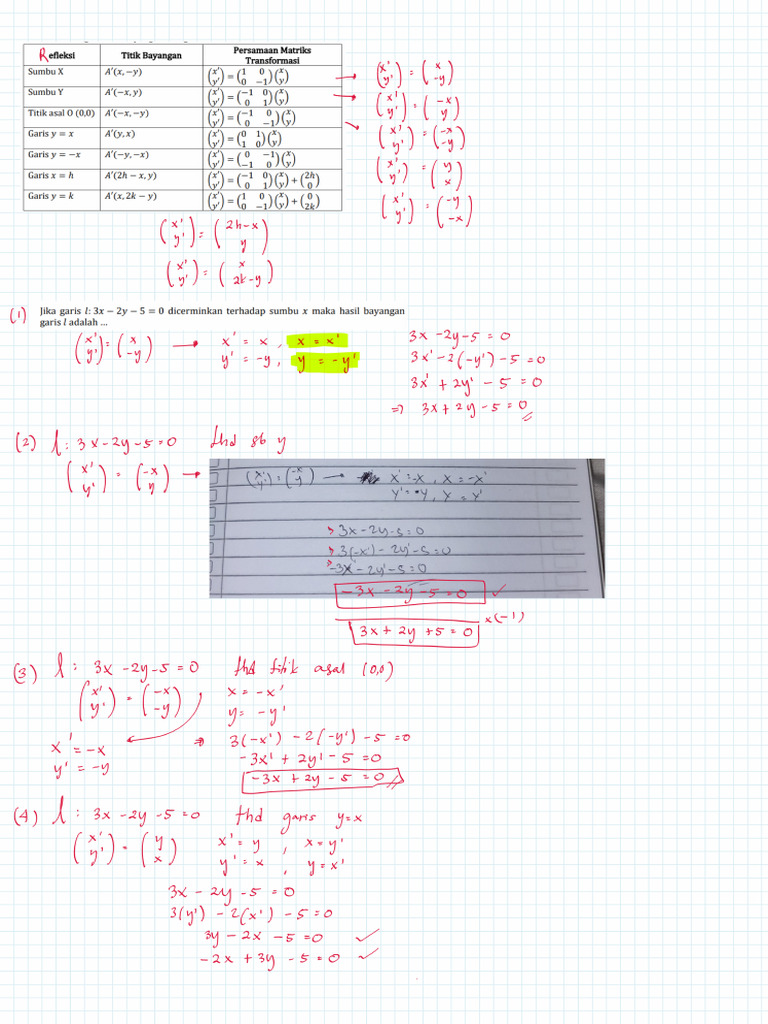 Refleksi Titik Bayangan Persamaan Matriks Transformasi
Sumbu X A′(x, −y) (x′ y′) = (1 0 0 −1)(x y) → (x' y') = (x -y)
Sumbu Y A′(−x, y) (x′ y′) = (−1 0 0 1)(x y) → (x' y') = (-x y)
Titik asal O (0,0) A′(−x, −y) (x′ y′) = (−1 0 0 −1)(x y) → (x' y') = (-x -y)
Garis y = x A′(y, x) (x′ y′) = (0 1 1 0)(x y) (x' y') = (y x)
Garis y = −x A′(−y, −x) (x′ y′) = (0 −1 −1 0)(x y) (x' y') = (-y -x)
Garis x = h A′(2h − x, y) (x′ y′) = (−1 0 0 1)(x y) + (2h 0)
Garis y = k A′(x, 2k − y) (x′ y′) = (1 0 0 −1)(x y) + (0 2k)
(x' y') = (2h-x y)
(x' y') = (x 2k-y)
(1) Jika garis l: 3x − 2y − 5 = 0 dicerminkan terhadap sumbu x maka hasil bayangan
garis l adalah ...
(x' y') = (x -y) → x' = x, x = x'
y' = -y, y = -y'
3x - 2y - 5 = 0
3x' - 2(-y') - 5 = 0
3x' + 2y' - 5 = 0
=> 3x + 2y - 5 = 0
(2) l: 3x - 2y - 5 = 0 thd sb y
(x' y') = (-x y) →
(x' y') = (-x y) → x' = -x, x = -x'
y' = y, y = y'
3x - 2y - 5 = 0
3(-x') - 2y' - 5 = 0
-3x' - 2y' - 5 = 0
-3x - 2y - 5 = 0 ✓
x(-1)
3x + 2y + 5 = 0
(3) l: 3x - 2y - 5 = 0 thd titik asal (0,0)
(x' y') = (-x -y) x = -x'
y = -y'
x' = -x
y' = -y
=> 3(-x') - 2(-y') - 5 = 0
-3x' + 2y' - 5 = 0
-3x + 2y - 5 = 0
(4) l: 3x - 2y - 5 = 0 thd garis y=x
(x' y') = (y x) x' = y, x = y'
y' = x, y = x'
3x - 2y - 5 = 0
3(y') - 2(x') - 5 = 0
3y - 2x - 5 = 0 ✓
-2x + 3y - 5 = 0 ✓